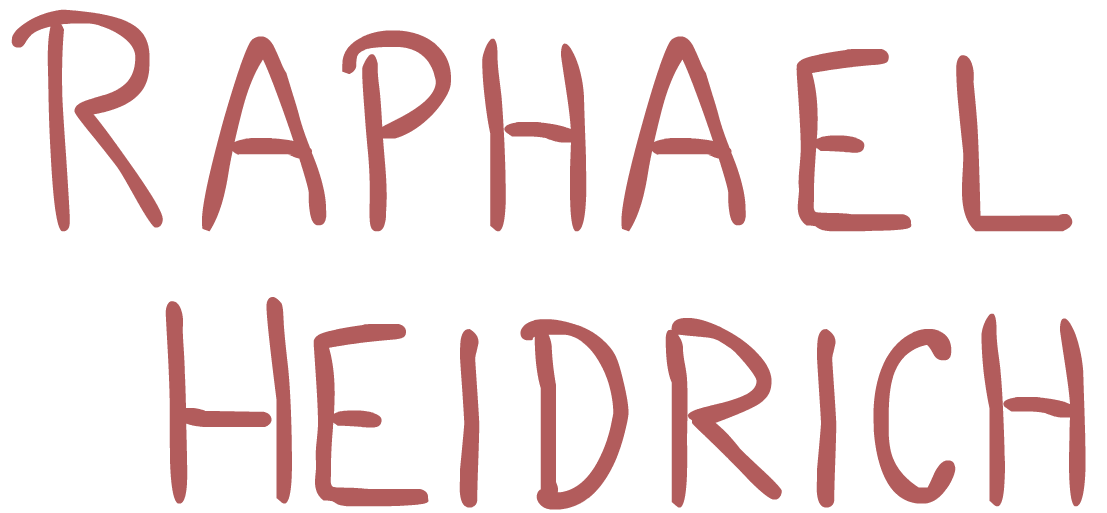 RAPHAEL
HEIDRICH